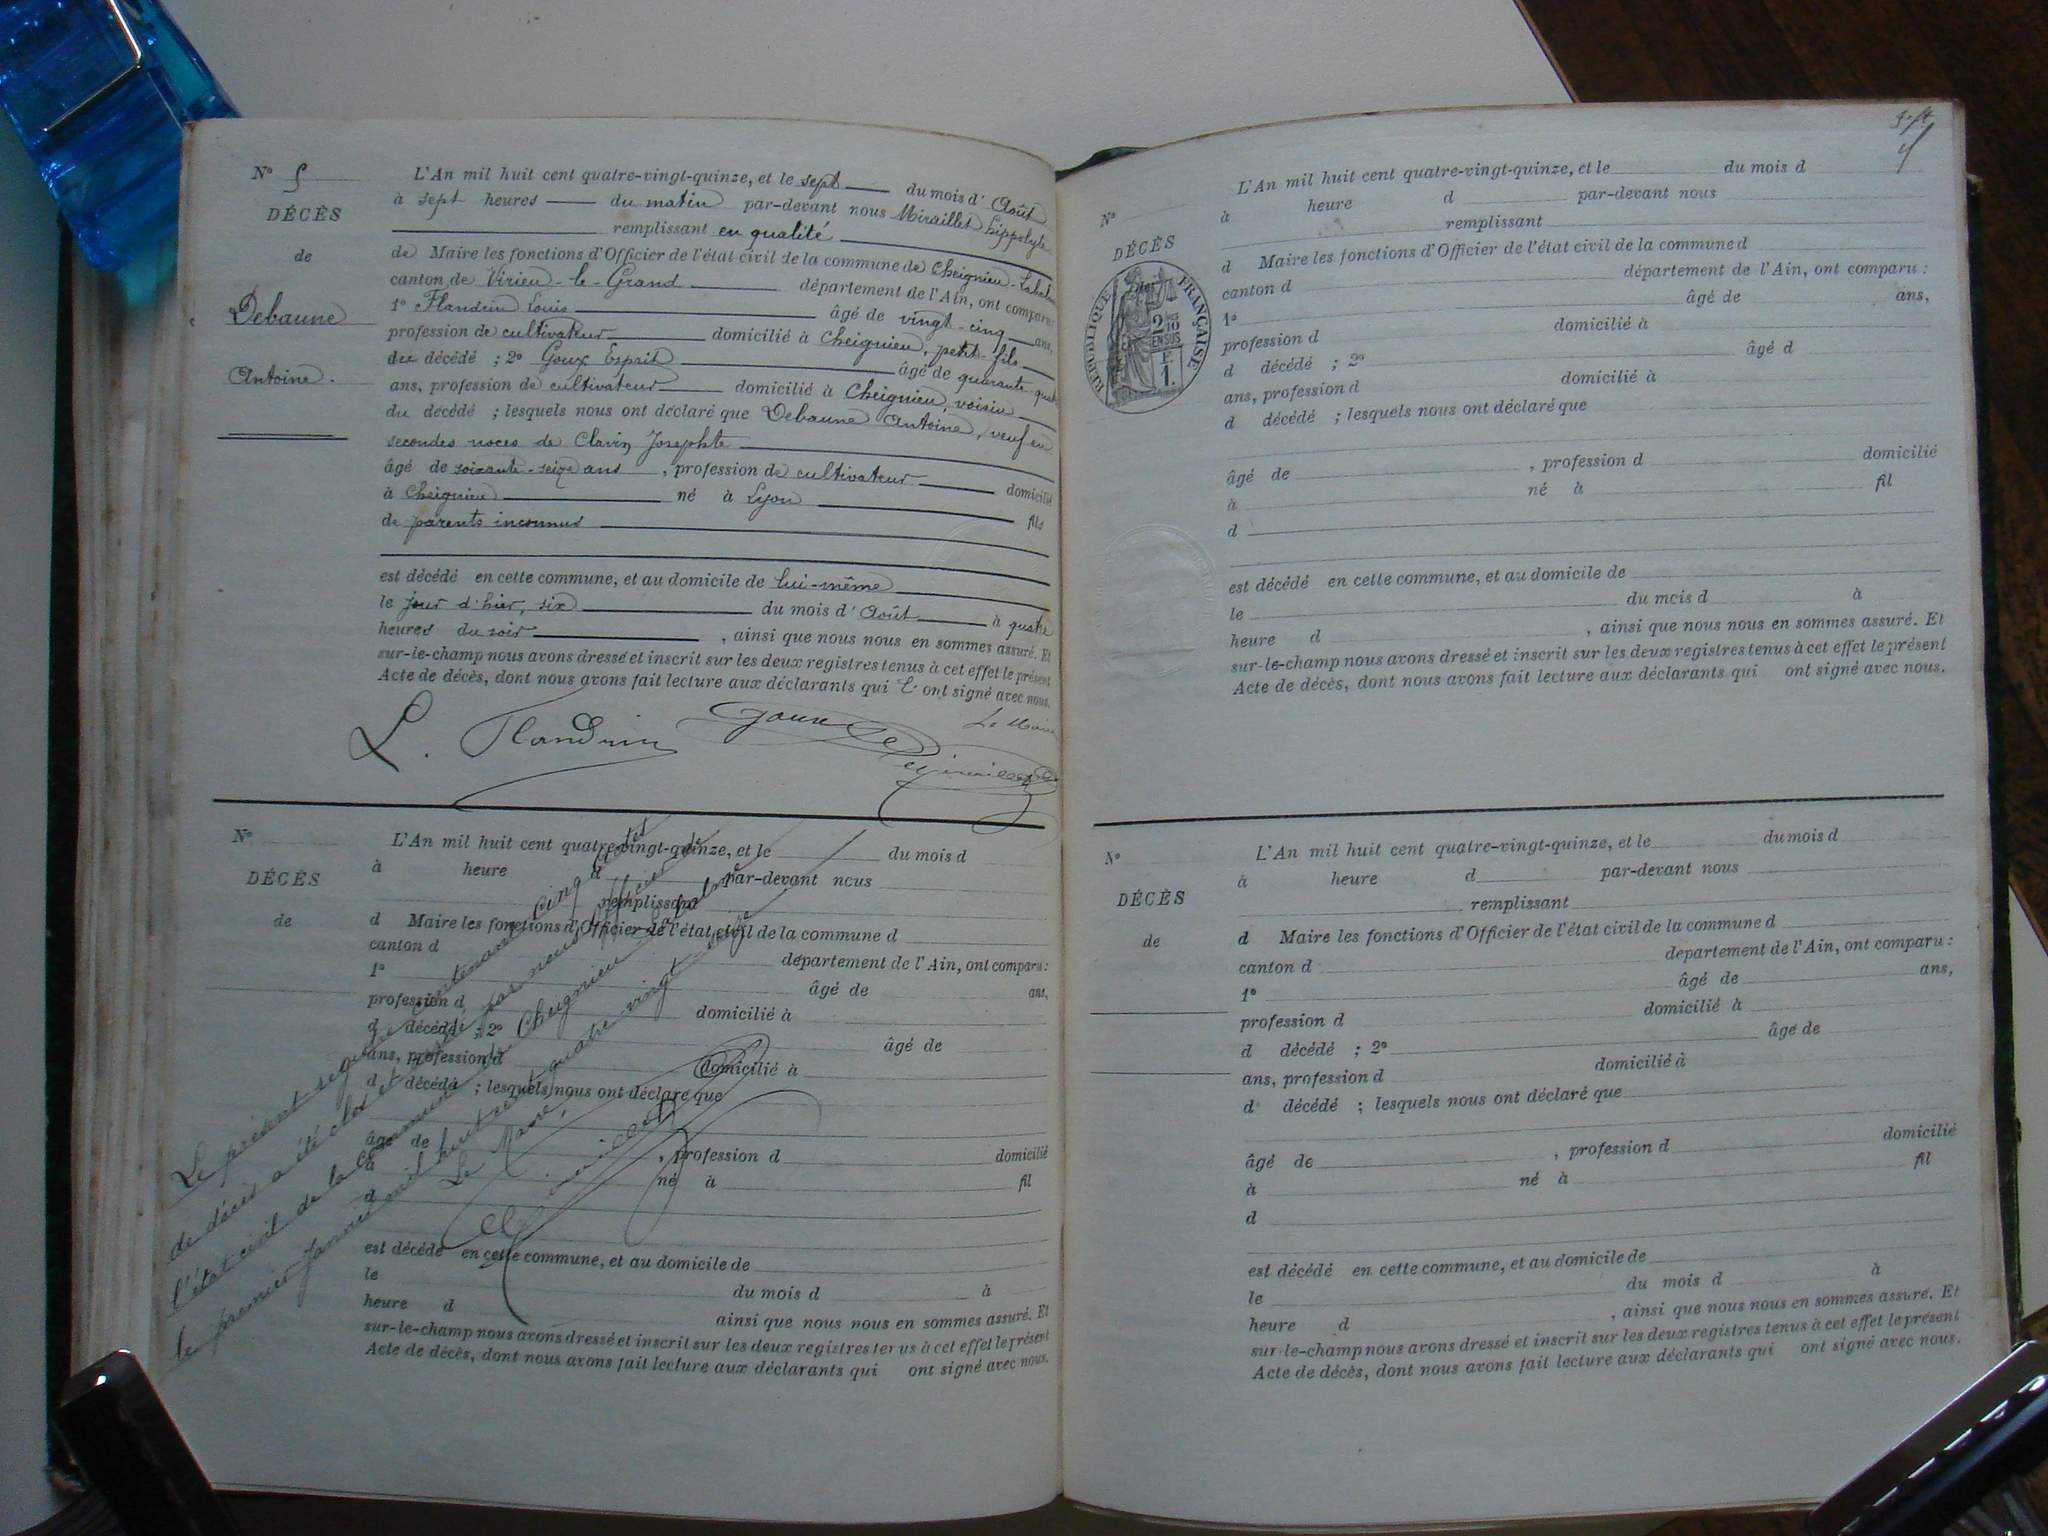 N° 5
DÉCÈS
de
Debaune
Antoine.
L'An mil huit cent quatre-vingt-quinze, et le sept du mois d'Août
à sept heures du matin par-devant nous Miraillet hippolyte
remplissant en qualité
de Maire les fonctions d'Officier de l'état civil de la commune de Cheignieu-Labalme
canton de Virieu-le-Grand département de l'Ain, ont comparu:
1° Flandrin Louis âgé de vingt-cinq ans,
profession de cultivateur domicilié à Cheignieu, petit-fils
du décédé ; 2° Goux Esprit âgé de quarante-quatre
ans, profession de cultivateur domicilié à Cheignieu, voisin
du décédé ; lesquels nous ont déclaré que Debaune Antoine, veuf en
secondes noces de Clavin Josephte
âgé de soixante-seize ans , profession de cultivateur domicilié
à Cheignieu né à Lyon fils
de parents inconnus
est décédé en cette commune, et au domicile de lui-même
le jour d'hier, six du mois d'Août à quatre
heures du soir , ainsi que nous nous en sommes assuré. Et
sur-le-champ nous avons dressé et inscrit sur les deux registres tenus à cet effet le présent
Acte de décès, dont nous avons fait lecture aux déclarants qui ont signé avec nous.
L. Flandrin Goux Le Maire
Miraillet
N°
DÉCÈS
de
L'An mil huit cent quatre-vingt-quinze, et le du mois d
à heure d par-devant nous
remplissant
d Maire les fonctions d'Officier de l'état civil de la commune d
canton d département de l'Ain, ont comparu:
1° âgé de ans,
profession d domicilié à
d décédé ; 2° âgé de
ans, profession d domicilié à
d décédé ; lesquels nous ont déclaré que
âgé de , profession d domicilié
à né à fil
d
est décédé en cette commune, et au domicile de
le du mois d à
heure d ainsi que nous nous en sommes assuré. Et
sur-le-champ nous avons dressé et inscrit sur les deux registres tenus à cet effet le présent
Acte de décès, dont nous avons fait lecture aux déclarants qui ont signé avec nous.
Le présent registre contenant cinq actes
de décès a été clos et par nous Officier de
l'état civil de la Commune de Cheignieu-Labalme
le premier Janvier mil huit cent quatre vingt seize
Le Maire,
Miraillet
N°
DÉCÈS
RÉPUBLIQUE FRANÇAISE
2/10 EN SUS
F.
1.
L'An mil huit cent quatre-vingt-quinze, et le du mois d
à heure d par-devant nous
remplissant
d Maire les fonctions d'Officier de l'état civil de la commune d
canton d département de l'Ain, ont comparu:
1° âgé de ans,
profession d domicilié à
d décédé ; 2° âgé d
ans, profession d domicilié à
d décédé ; lesquels nous ont déclaré que
âgé de , profession d domicilié
à né à fil
d
est décédé en cette commune, et au domicile de
le du mois d à
heure d , ainsi que nous nous en sommes assuré. Et
sur-le-champ nous avons dressé et inscrit sur les deux registres tenus à cet effet le présent
Acte de décès, dont nous avons fait lecture aux déclarants qui ont signé avec nous.
N°
DÉCÈS
de
L'An mil huit cent quatre-vingt-quinze, et le du mois d
à heure d par-devant nous
remplissant
d Maire les fonctions d'Officier de l'état civil de la commune d
canton d département de l'Ain, ont comparu:
1° âgé de ans,
profession d domicilié à
d décédé ; 2° âgé de
ans, profession d domicilié à
d décédé ; lesquels nous ont déclaré que
âgé de , profession d domicilié
à né à fil
d
est décédé en cette commune, et au domicile de
le du mois d à
heure d , ainsi que nous nous en sommes assuré. Et
sur-le-champ nous avons dressé et inscrit sur les deux registres tenus à cet effet le présent
Acte de décès, dont nous avons fait lecture aux déclarants qui ont signé avec nous.